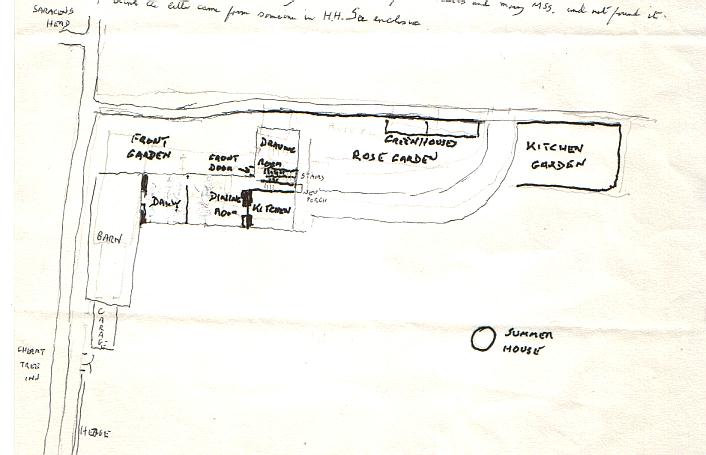 and many MSS. and not found it.
think the letter came from someone in H.H. See enclosure
SARACENS
HEAD
FRONT
GARDEN
DRAWING
ROOM
FRONT
DOOR
STAIRS
GREENHOUSES
ROSE GARDEN
KITCHEN
GARDEN
NEW
PORCH
DAIRY
DINING
ROOM
KITCHEN
BARN
GARAGE
SUMMER
HOUSE
TREE
INN
HEDGE